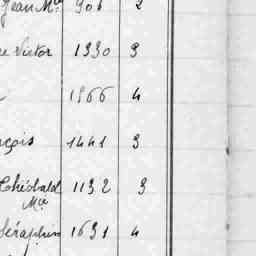 Jean Mie 906 2
Victor 1330 3
1866 4
çois 1441 3
Théobald 1132 3
Mie
Séraphin 1631 4